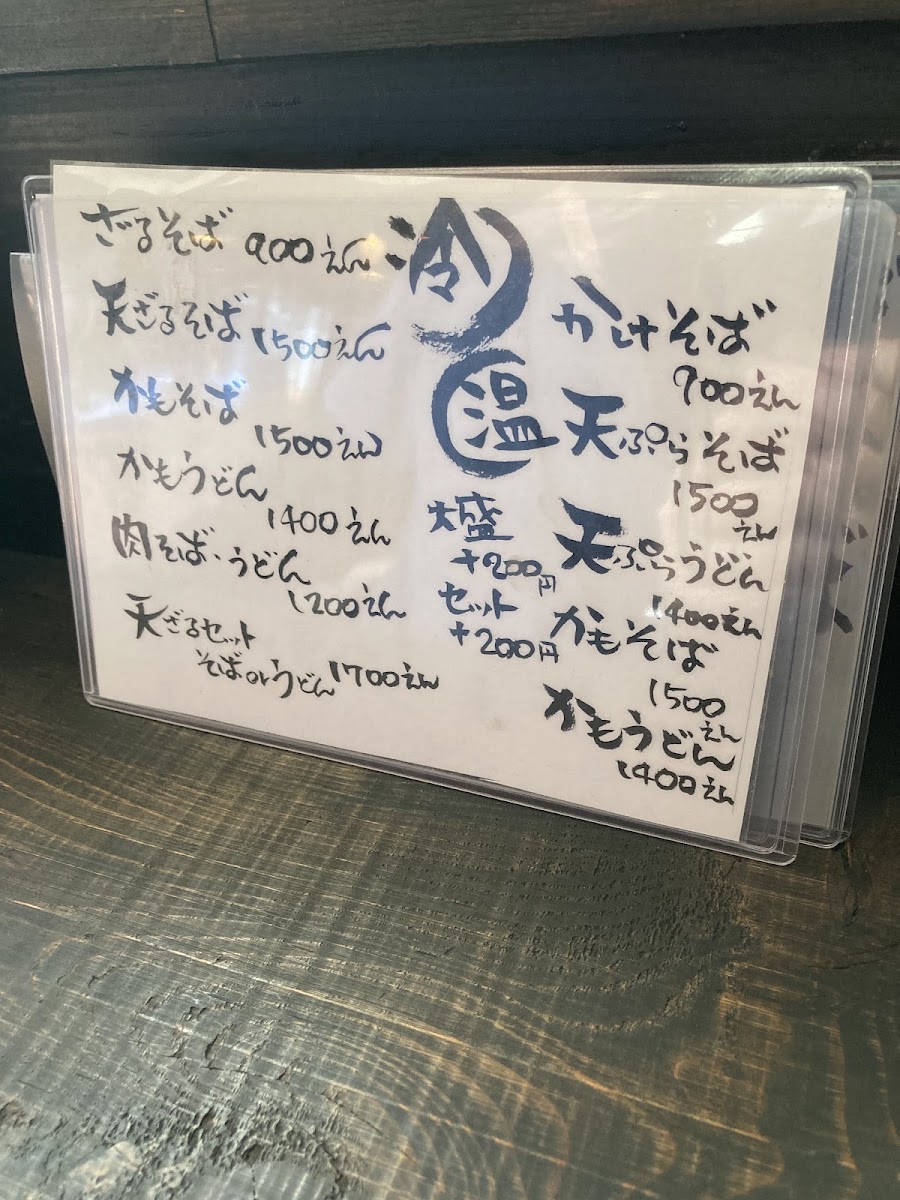 冷
ざるそば 900えん
天ざるそば
1500えん
かもそば
1500えん
かもうどん
1400えん
肉そば・うどん
1200えん
天ざるセット
そばorうどん 1700えん
温
かけそば
900えん
天ぷらそば
1500
えん
天ぷらうどん
1400えん
かもそば
1500
えん
かもうどん
1400えん
大盛
+200円
セット
+200円